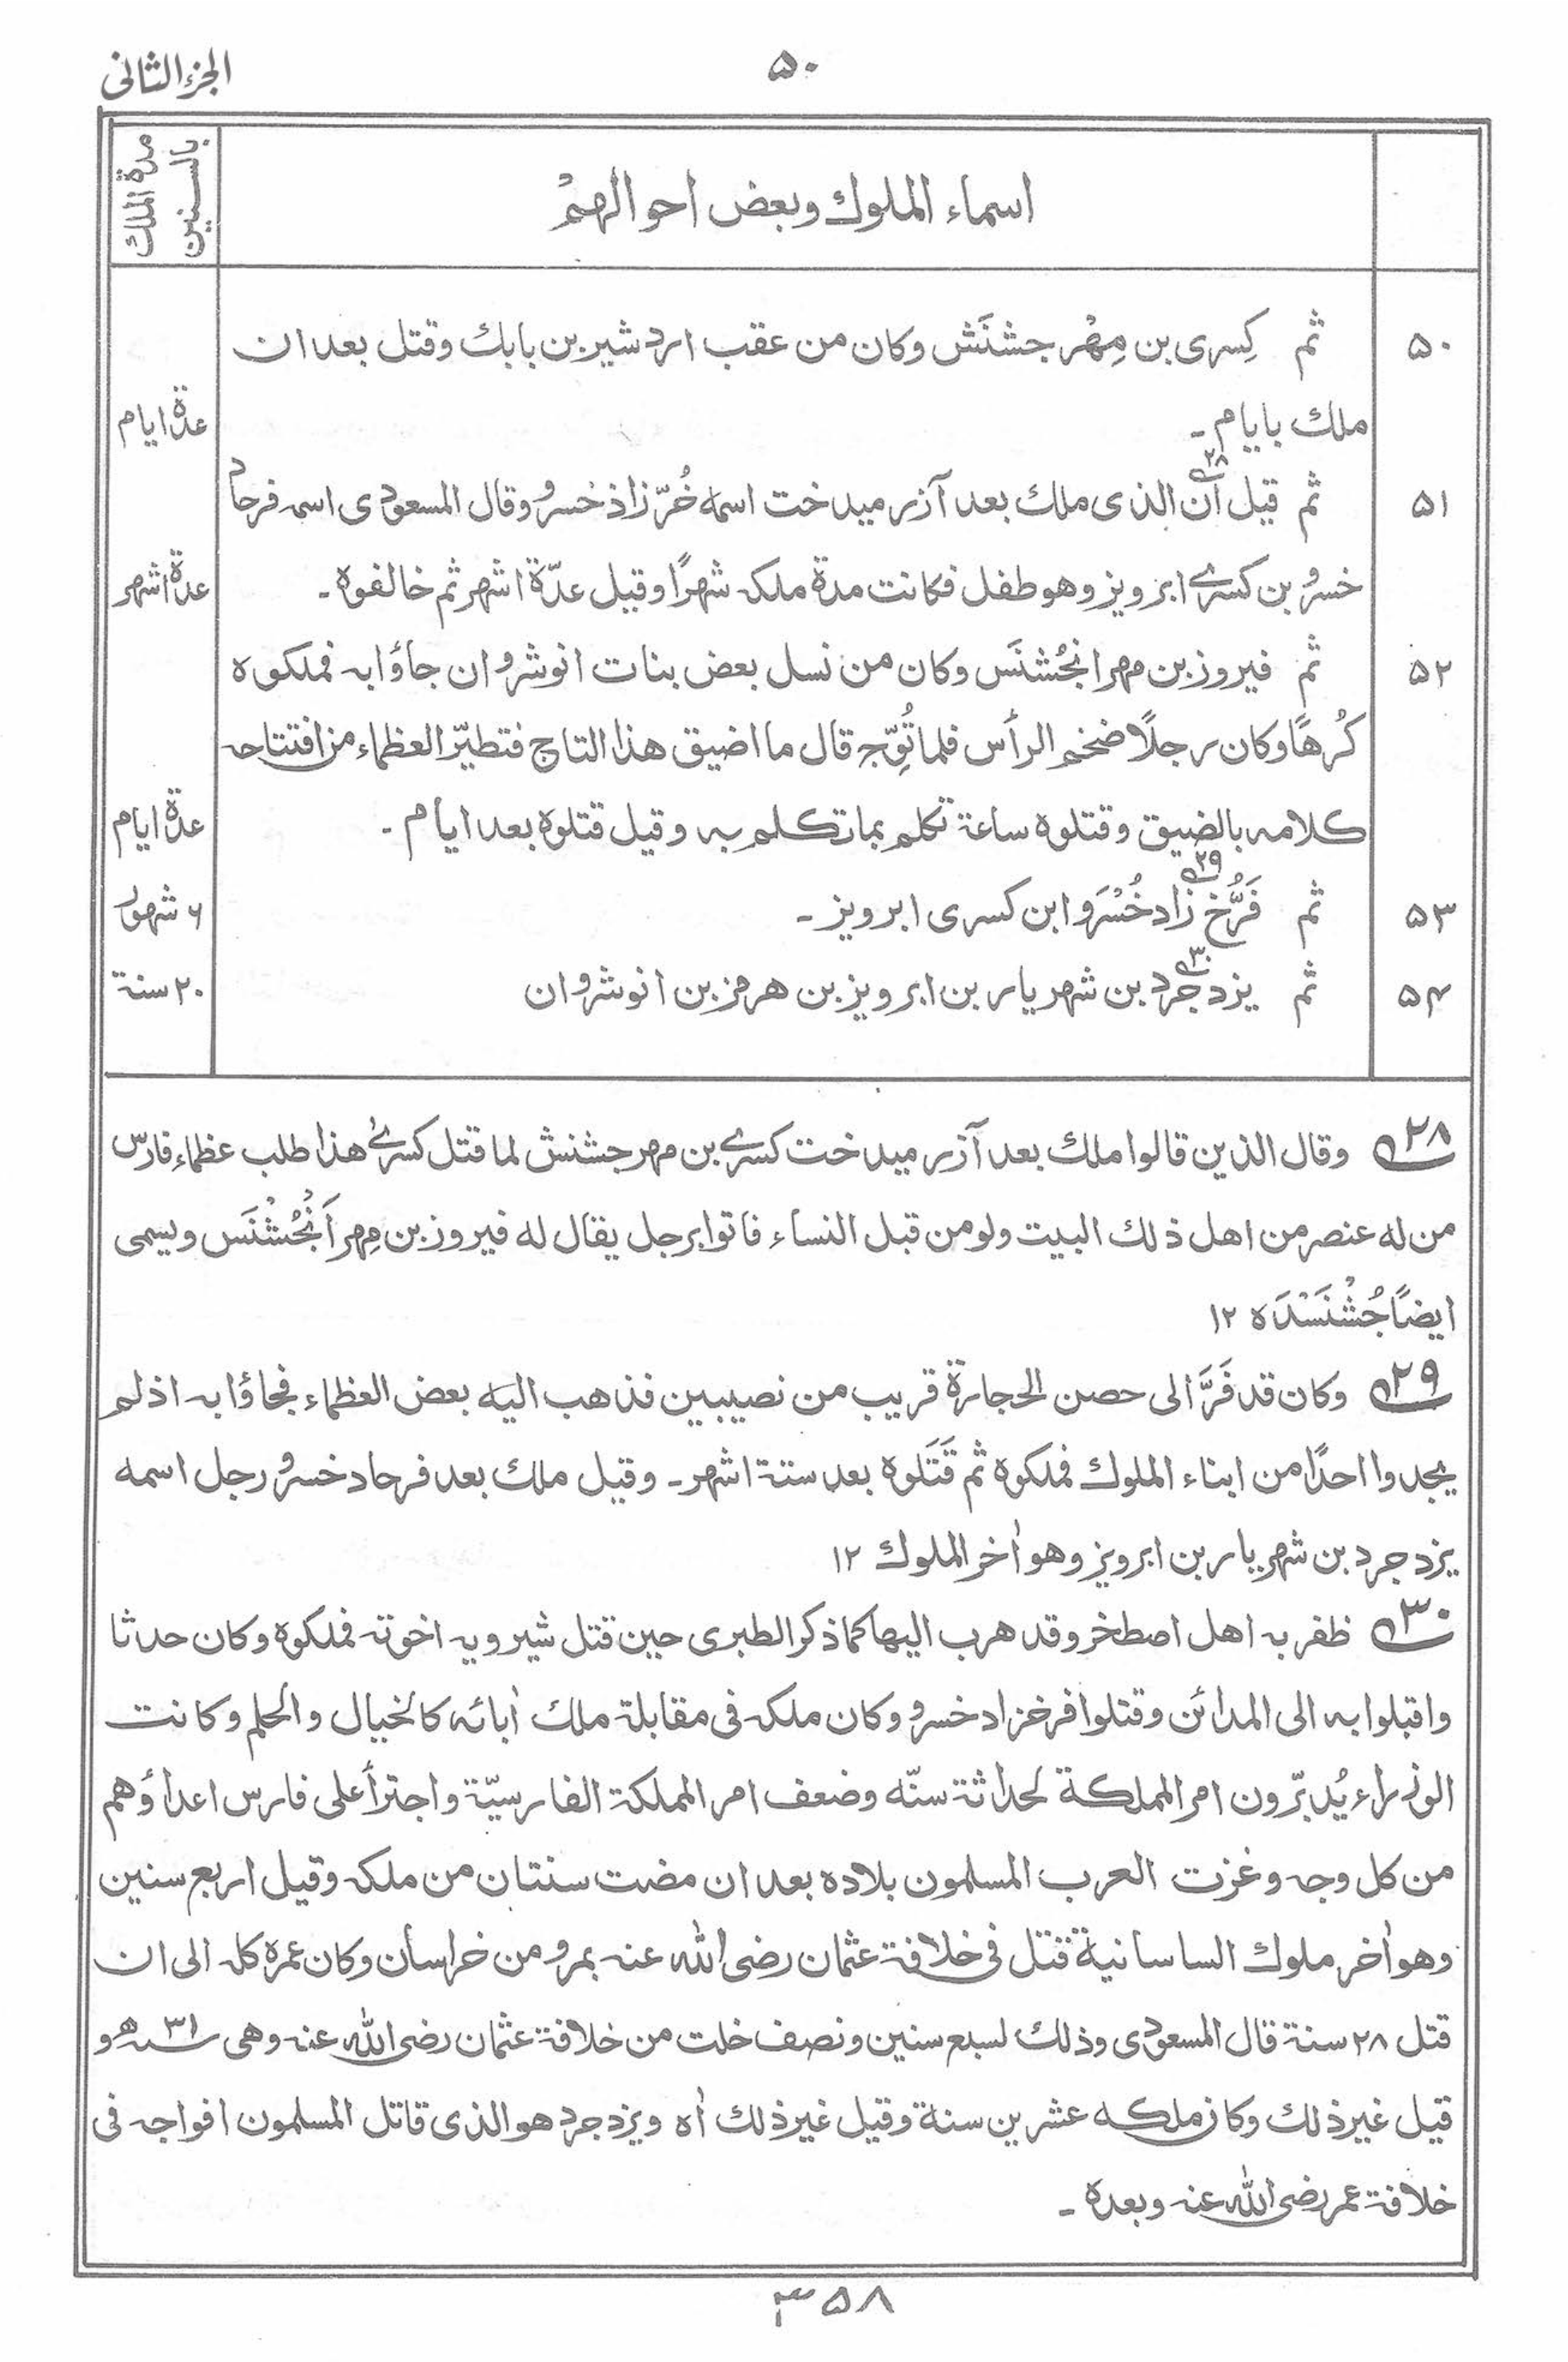 الجزء الثانی
۵۰
اسماء الملوك وبعض احوالهم
مدة الملك
بالسنين
۵۰ ثم كِسری بن مِهْر جشنَش وكان من عقب اردشير بن بابك وقتل بعد ان
ملك بايام ۔ عدة ايام
۵۱ ثم قيل ان۲۸ الذی ملك بعد آزرميدخت اسمه خُرّزاذ خسرو وقال المسعودی اسمه فرحاد
خسرو بن كسرے ابرويز وهو طفل فكانت مدة ملكه شهرًا وقيل عدّة اشهر ثم خالفوه ۔ عدة اشهر
۵۲ ثم فيروز بن مهرانجُشنَس وكان من نسل بعض بنات انوشروان جاؤا به فملكوه
كُرهًا وكان رجلًا ضخم الرأس فلما تُوِّج قال ما اضيق هذا التاج فتطيّر العظماء من افتتاحه
كلامه بالضيق وقتلوه ساعة تكلم بما تكلم به وقيل قتلوه بعد ايام ۔ عدة ايام
۵۳ ثم فَرُّخ۲۹ زاد خُسْرَو ابن كسری ابرويز ۔ ۶ شهور
۵۴ ثم يزدجرد۳۰ بن شهريار بن ابرويز بن هرمز بن انوشروان ۲۰ سنة
۲۸ وقال الذين قالوا ملك بعد آزرميدخت كسرے بن مهرجشنش لما قتل كسرے هذا طلب عظماء فارس
من له عنصر من اهل ذلك البيت ولو من قبل النساء فاتوا برجل يقال له فيروز بن مِهراَنْجُشْنَس ويسمی
ايضًا جُشْنَسْدَه ۱۲
۲۹ وكان قد فَرَّ الی حصن الحجارة قريب من نصيبين فذهب اليه بعض العظماء فجاؤا به اذ لم
يجدوا احدًا من ابناء الملوك فملكوه ثم قَتَلوه بعد ستة اشهر ۔ وقيل ملك بعد فرحاد خسرو رجل اسمه
يزدجرد بن شهريار بن ابرويز وهو اٰخر الملوك ۱۲
۳۰ ظفر به اهل اصطخر وقد هرب اليها كما ذكر الطبری حين قتل شيرويه اخوته فملكوه وكان حدثا
واقبلوا به الی المدائن وقتلوا فرخزاد خسرو وكان ملكه فی مقابلة ملك اٰبائه كالخيال والحلم وكانت
الوزراء يُدبّرون امر المملكة لحداثة سنّه وضعف امر المملكة الفارسيّة واجترأ علی فارس اعداؤهم
من كل وجه وغزت العرب المسلمون بلاده بعد ان مضت سنتان من ملكه وقيل اربع سنين
وهو اٰخر ملوك الساسانية قتل فی خلافة عثمان رضی الله عنه بمرو من خراسان وكان عمره كله الی ان
قتل ۲۸ سنة قال المسعودی وذلك لسبع سنين ونصف خلت من خلافة عثمان رضی الله عنه وهی سنه ۳۱ ه و
قيل غير ذلك وكان ملكه عشرين سنة وقيل غير ذلك اٰه ويزدجرد هو الذی قاتل المسلمون افواجه فی
خلافة عمر رضی الله عنه وبعده ۔
۳۵۸